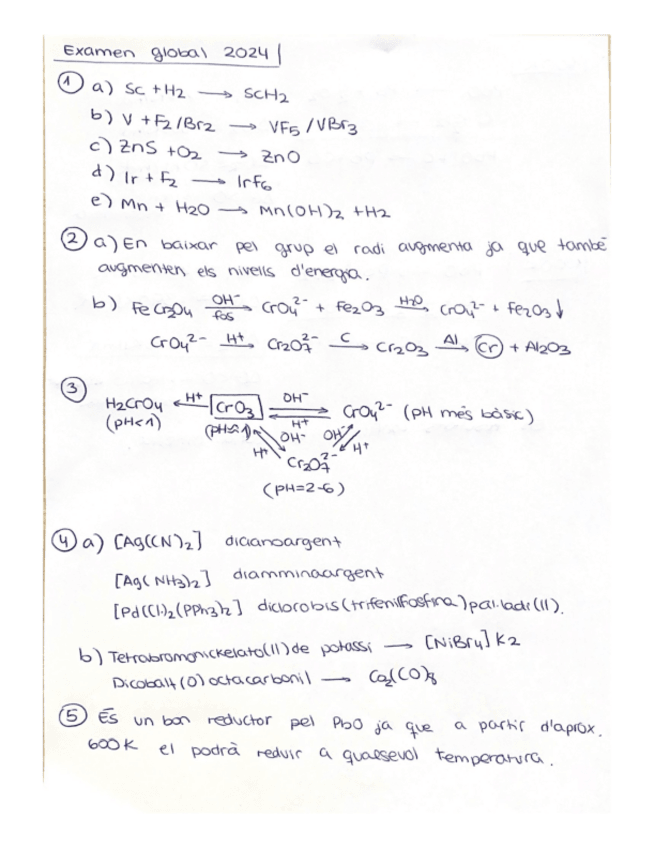 Examen global 2024
① a) Sc + H2 → ScH2
b) V + F2/Br2 → VF5 / VBr3
c) ZnS + O2 → ZnO
d) Ir + F2 → IrF6
e) Mn + H2O → Mn(OH)2 + H2
② a) En baixar pel grup el radi augmenta ja que també
augmenten els nivells d'energia.
b) FeCr2O4 OH⁻ fos → CrO4²⁻ + Fe2O3 H2O → CrO4²⁻ + Fe2O3↓
CrO4²⁻ H⁺ → Cr2O7²⁻ C → Cr2O3 Al → Cr + Al2O3
③
H2CrO4 ← H⁺ CrO3 OH⁻ ⇌ H⁺ CrO4²⁻ (pH més bàsic)
(pH<1) (pH≈1) H⁺ OH⁻ OH⁻ H⁺
Cr2O7²⁻
(pH=2-6)
④ a) [Ag(CN)2] dicianoargent
[Ag(NH3)2] diamminaargent
[Pd(Cl)2(PPh3)2] diclorobis(trifenilfosfina)pal.ladi(II).
b) Tetrabromonickelato(II) de potassi → [NiBr4]K2
Dicobalt(0)octacarbonil → Co2(CO)8
⑤ És un bon reductor pel PbO ja que a partir d'aprox.
600K el podrà reduir a qualsevol temperatura.